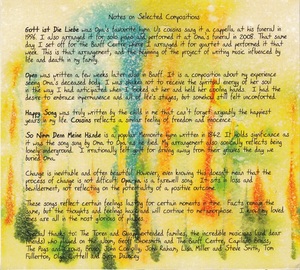 Notes on Selected Compositions
Gott ist Die Liebe was Oma's favourite hymn. Us cousins sang it a cappella at his funeral in
1996. I also arranged it for solo piano and performed it at Oma's funeral in 2008. That same
day I set off for the Banff Centre where I arranged it for quartet and performed it that
week. This is that arrangement, and the beginning of the project of writing music influenced by
life and death in my family.
Opus was written a few weeks later in Banff. It is a composition about my experience
seeing Oma's deceased body. I was shaken not to receive the special energy of her soul
in the way I had anticipated when I looked at her and held her cooling hands. I had the
desire to embrace impermanence and all of life's stages, but somehow still felt uncomforted.
Happy Song was truly written by the child in me that can't forget arguably the happiest
years in my life. Cousins reflects a similar feeling of freedom and innocence.
So Nimm Denn Meine Hände is a popular Mennonite hymn written in 1842. It holds significance as
it was the song sung by Oma to Opa as he died. My arrangement also sonically reflects being
lonely underground. I irrationally felt sad for driving away from their graves the day we
buried Oma.
Change is inevitable and often beautiful. However, even knowing this doesn't mean that the
process of change is not difficult. Opus is a farewell song. It reflects a loss and
bewilderment, not reflecting on the potentiality of a positive outcome.
These songs reflect certain feelings during certain moments in time. Facts remain the
same, but the thoughts and feelings behind will continue to metamorphose. I thank my loved
ones are all in the most wonderful place.
Special thanks to: The and Quiring extended families, the incredible musicians (and dear
friends) who played on this album, Geoff Shoesmith and The Banff Centre, Capilano Breaks,
The Pugs and Crows, friends John Connolly, John Kachan, Lisa Miller and Steve Smith, Tom
Fullerton, Olay Kuttell and Byron Duncey.